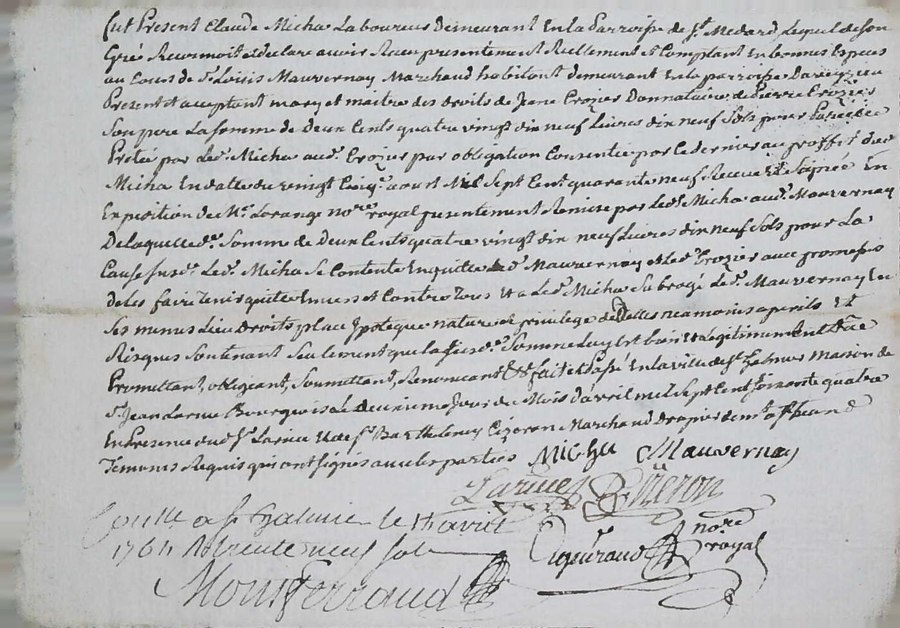 fut Present Claude Micha Laboureur demeurant En la Parroisse de St. Medard Lequel de son
Gré Reconnoit et declare avoir Receu presentement Reellement et Comptant En bonnes Especes
au Cours de Sr. Louis Mauvernay Marchand habitant demeurant En la parroisse
Present et acceptant mary et maitre des droits de Jeane Crozier Donnataire de Pierre Crozier
Son pere La somme de Deux Cents quatre vingt dix neuf Livres dix neuf Sols pour
Pretée par Led. Micha aud. Crozier par obligation Consentie par Ce dernier au proffit dud.
Micha En datte du vingt Cinq. aout Mil Sept Cent quarante neuf Receue Et Signée En
Expedition de Me. Lorange nore. royal presentement Remise par Led. Micha aud. Mauvernay
De laquelle de. Somme de Deux Cents quatre vingt dix neuf Livres dix neuf Sols pour La
Cause Led. Micha Se Contente En quitte Led. Mauvernay et Led. Crozier avec promesse
de Les faire Tenir quitte Envers et Contre Tous Et a Led. Micha Subrogé Led. Mauvernay En
Ses memes Lieu Droits place ypoteque nature et privilege neamoins a perils Et
Risques Soutenant Seulement que La susde. Somme Luy Est bien Et Legitimement Due
Promettant, obligeant, Soumettant, Renoncant Et fait et Passé En la ville de St. Galmier Maison de
Sr. Jean Larue Bourgeois Le deuxieme Jour du Mois d'avril mil Sept Cent Soixante quatre
En Presence dud. Sr. Larue Et de Sr. Barthelemy Cizeron Marchand Drapier
Temoins Requis qui ont Signés avec Les parties Micha Mauvernay
Larue Cizeron
Conllé a St. Galmier le 11 avril
1764 R trente neuf sols nore royal
Montferraud